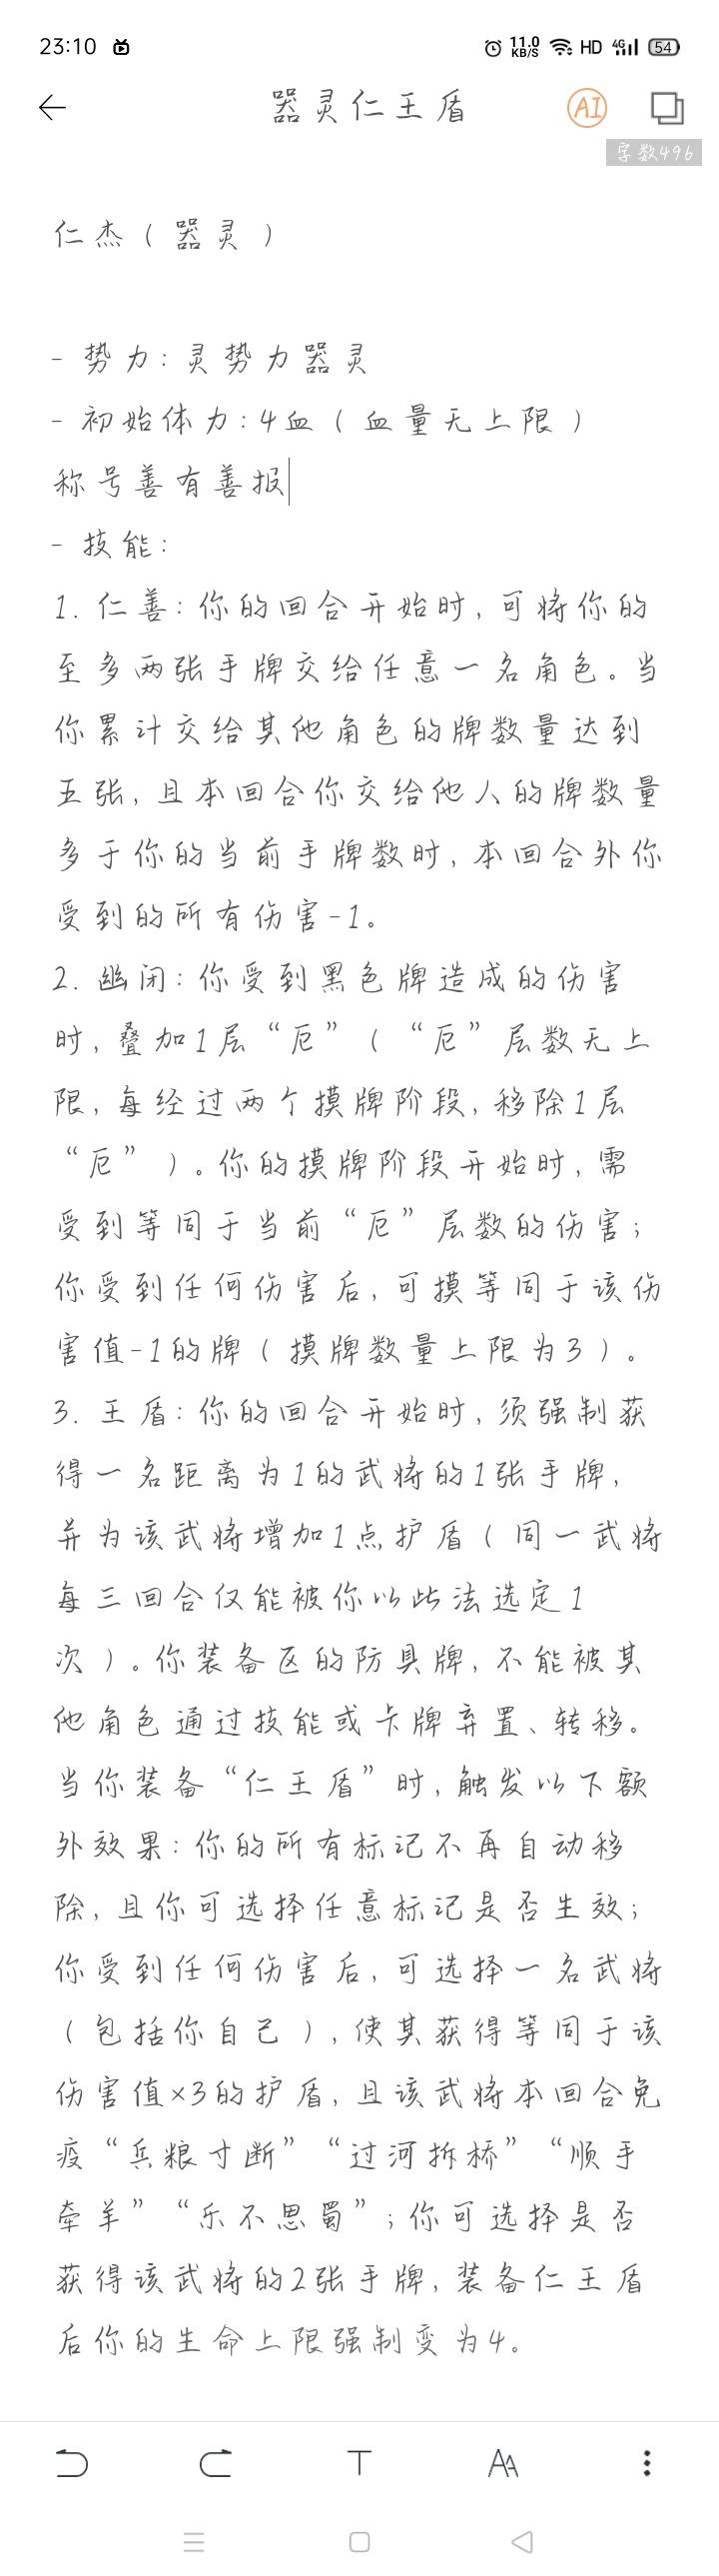 23:10
11.0
KB/S
HD
4G
54
器灵仁王盾
AI
字数496
仁杰（器灵）
- 势力：灵势力器灵
- 初始体力：4血（血量无上限）
称号善有善报
- 技能：
1. 仁善：你的回合开始时，可将你的
至多两张手牌交给任意一名角色。当
你累计交给其他角色的牌数量达到
五张，且本回合你交给他人的牌数量
多于你的当前手牌数时，本回合外你
受到的所有伤害-1。
2. 幽闭：你受到黑色牌造成的伤害
时，叠加1层“厄”（“厄”层数无上
限，每经过两个摸牌阶段，移除1层
“厄”）。你的摸牌阶段开始时，需
受到等同于当前“厄”层数的伤害；
你受到任何伤害后，可摸等同于该伤
害值-1的牌（摸牌数量上限为3）。
3. 王盾：你的回合开始时，须强制获
得一名距离为1的武将的1张手牌，
并为该武将增加1点护盾（同一武将
每三回合仅能被你以此法选定1
次）。你装备区的防具牌，不能被其
他角色通过技能或卡牌弃置、转移。
当你装备“仁王盾”时，触发以下额
外效果：你的所有标记不再自动移
除，且你可选择任意标记是否生效；
你受到任何伤害后，可选择一名武将
（包括你自己），使其获得等同于该
伤害值×3的护盾，且该武将本回合免
疫“兵粮寸断”“过河拆桥”“顺手
牵羊”“乐不思蜀”；你可选择是否
获得该武将的2张手牌，装备仁王盾
后你的生命上限强制变为4。
T
AA